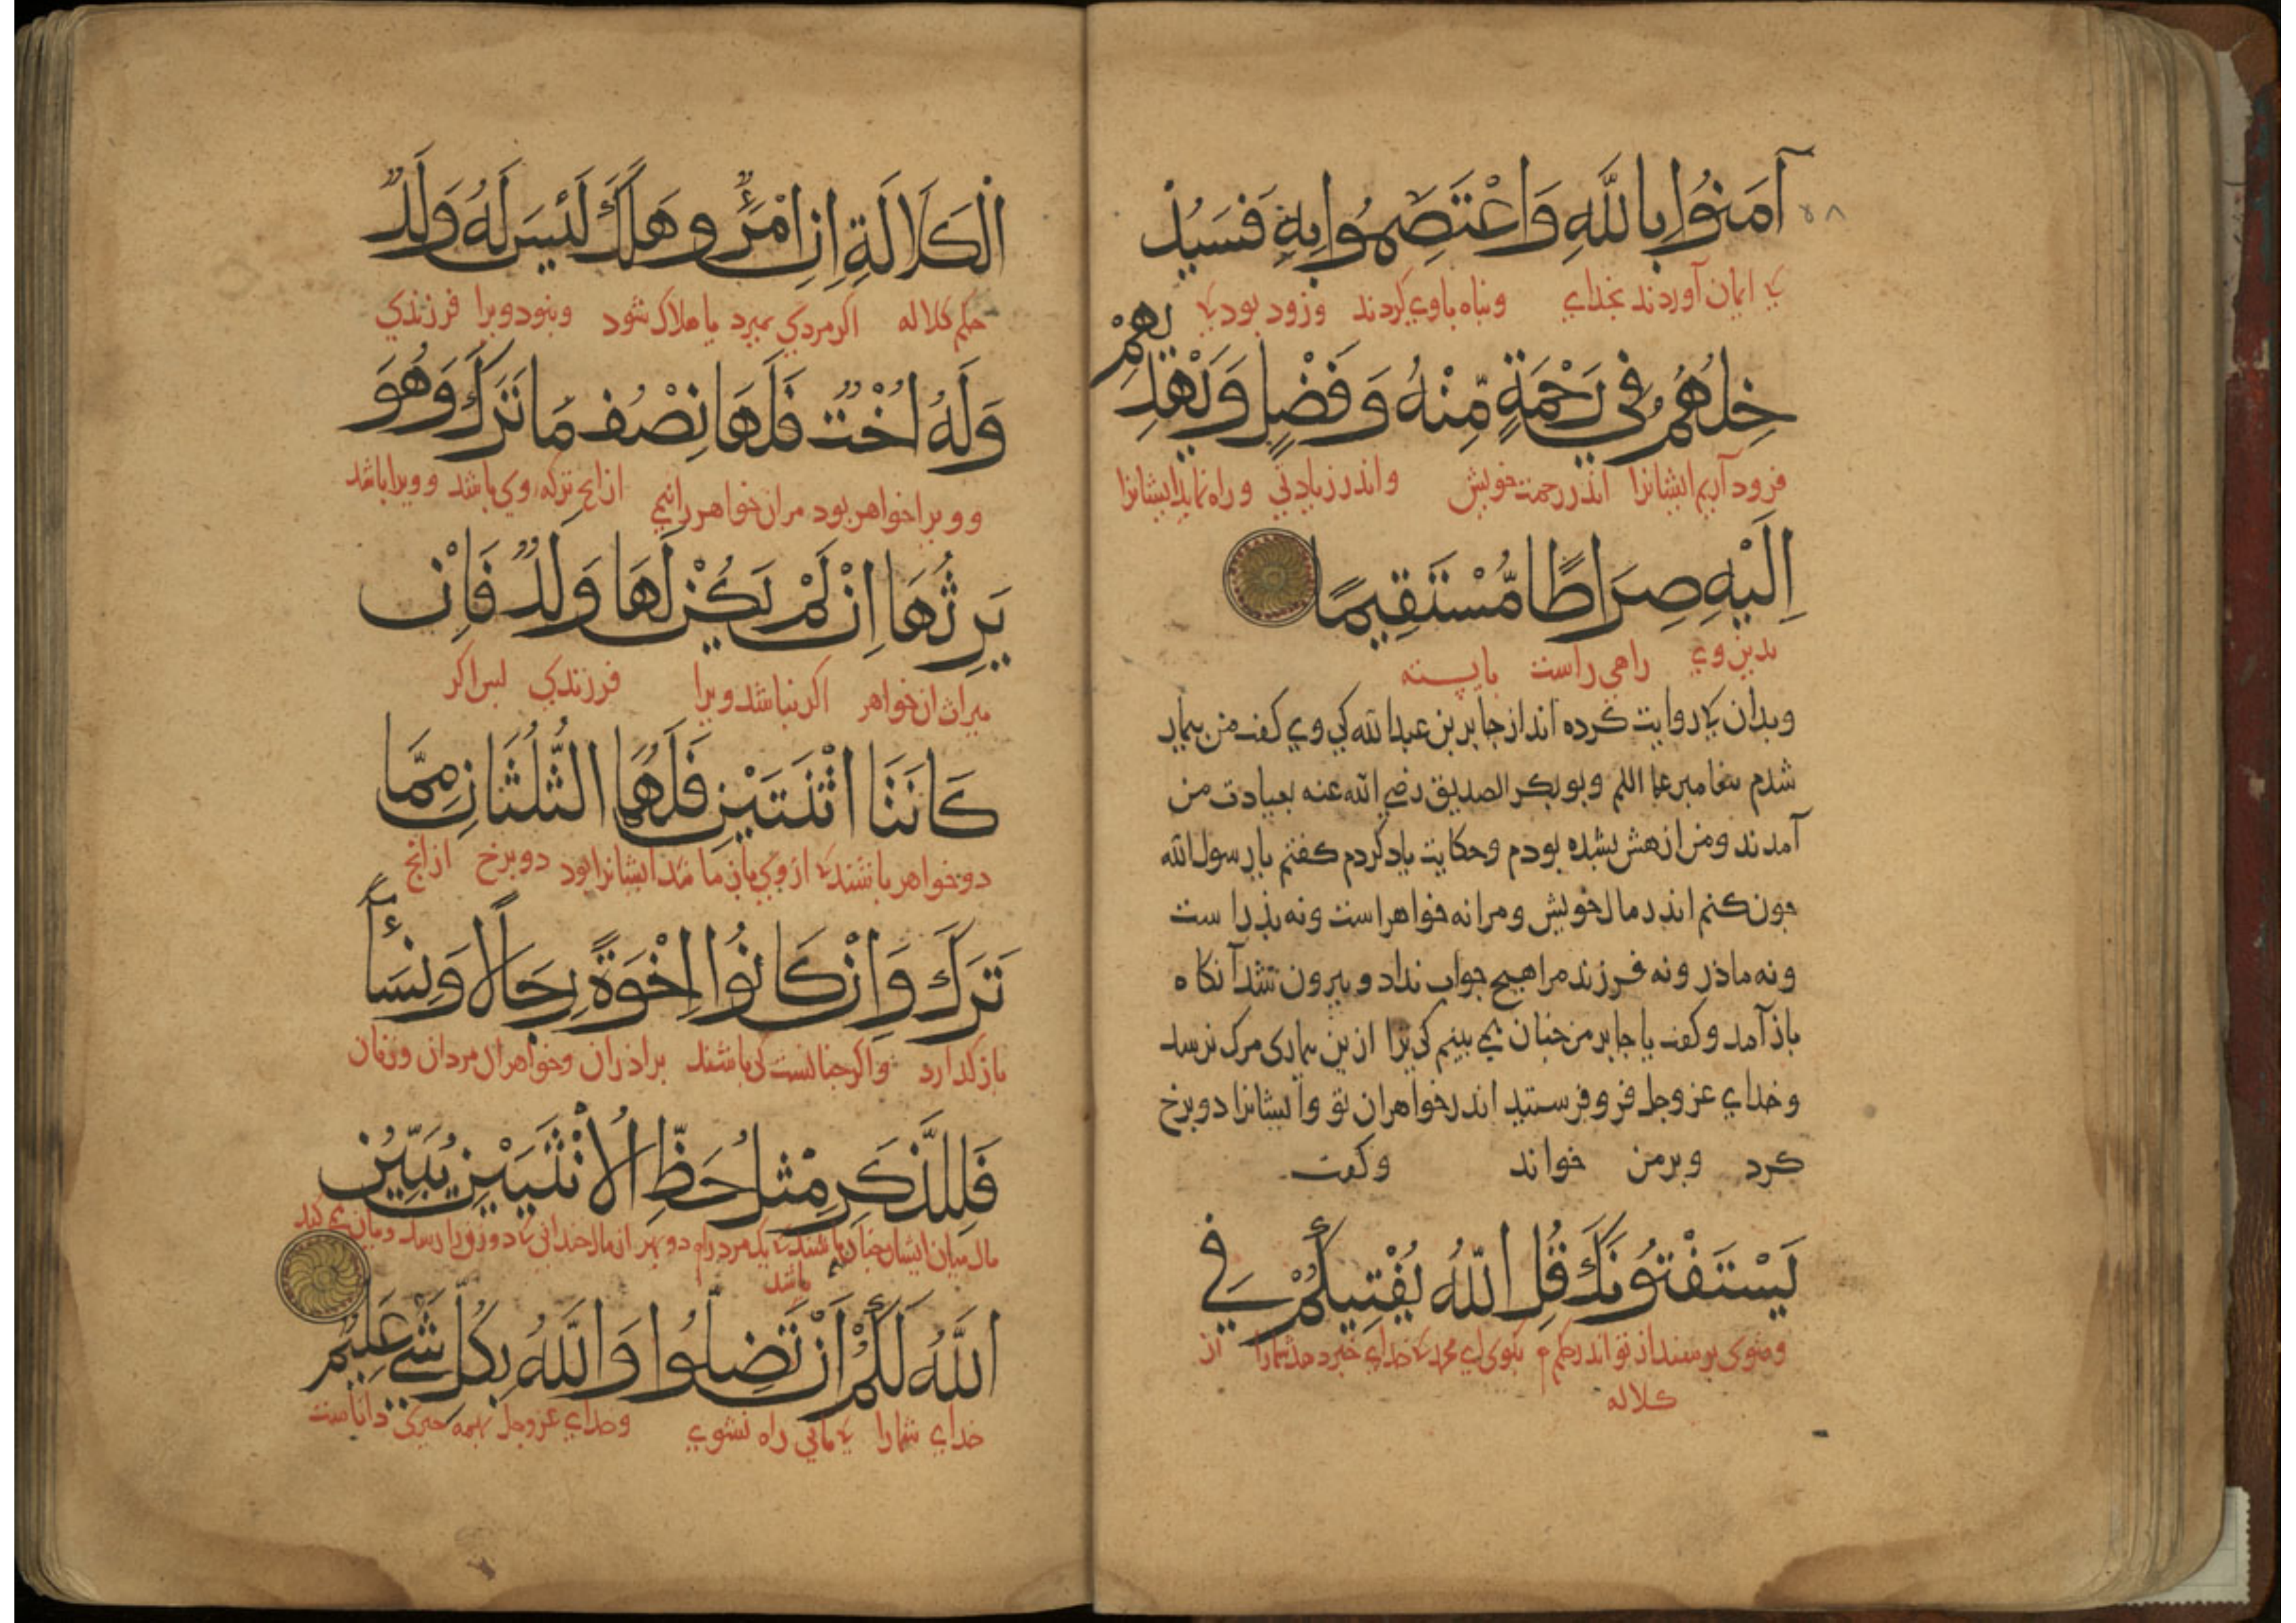 ۵۸
آمَنُوا بِاللَّهِ وَاعْتَصَمُوا بِهِ فَسَيُدْ
که ایمان آوردند بخدای وپناه باوی کردند وزود بود که
خِلُهُمْ فِي رَحْمَةٍ مِّنْهُ وَفَضْلٍ وَيَهْدِيهِمْ
فرود آریم ایشانرا اندر رحمت خویش واندر زیادتی وراه نماید ایشانرا
اِلَيْهِ صِرَاطًا مُّسْتَقِيمًا
بدین وی راهی راست بایسته
وبدان که روایت کرده اند از جابر بن عبدالله کی وی گفت من بیمار
شدم پیغامبر علیه السلم وبوبکر الصدیق رضی الله عنه بعیادت من
آمدند ومن از هش بشده بودم وحکایت یاد کردم گفتم یا رسول الله
چون کنم اندر مال خویش ومرا نه خواهر است ونه پذر است
ونه ماذر ونه فرزند مرا هیچ جواب نداد وبیرون شد آنگاه
باز آمد وگفت یا جابر من چنان می بینم کی ترا ازین بیماری مرگ نرسد
وخدای عزوجل فرو فرستید اندر خواهران تو وایشانرا دو برخ
کرد وبرمن خواند وگفت
يَسْتَفْتُونَكَ قُلِ اللَّهُ يُفْتِيكُمْ فِي
از تو اندر حکم بگوی ای محمد که خدای خبر دهد شمارا از
کلاله
الْكَلَالَةِ اِنِ امْرُؤٌ هَلَكَ لَيْسَ لَهُ وَلَدٌ
حکم کلاله اگر مردی بمیرد یا هلاک شود ونبود ویرا فرزندی
وَلَهُ اُخْتٌ فَلَهَا نِصْفُ مَا تَرَكَ وَهُوَ
وویرا خواهر بود مر ان خواهر را نیم از انچ ترکه وی باشد وویرا باشد
يَرِثُهَا اِنْ لَمْ يَكُنْ لَهَا وَلَدٌ فَاِنْ
میراث ان خواهر اگر نباشد ویرا فرزندی پس اگر
كَانَتَا اثْنَتَيْنِ فَلَهُمَا الثُّلُثَانِ مِمَّا
دو خواهر باشند که از وی باز ماند ایشانرا بود دو برخ از انچ
تَرَكَ وَاِنْ كَانُوا اِخْوَةً رِجَالًا وَنِسَآءً
باز گذارد واگر چنانست کی باشند براذران وخواهران مردان وزنان
فَلِلذَّكَرِ مِثْلُ حَظِّ الْاُنْثَيَيْنِ يُبَيِّنُ
مال میان ایشان چنان باشد که یک مرد را دو بهر از مال چندانی که دو زن را رسد وبیان می کند
باشد
اللَّهُ لَكُمْ اَنْ تَضِلُّوا وَاللَّهُ بِكُلِّ شَيْءٍ عَلِيمٌ
خدای شمارا تا بی راه نشوی وخدای عزوجل بهمه چیزی داناست